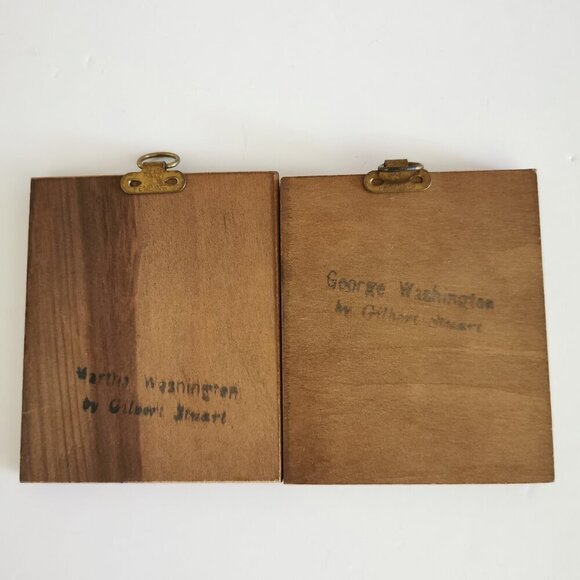 Martha Washington
by Gilbert Stuart
George Washington
by Gilbert Stuart